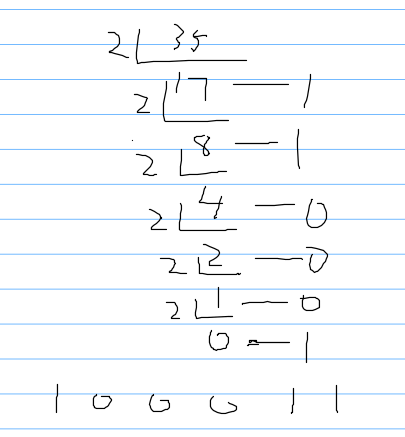 2 35
2 17 — 1
2 8 — 1
2 4 — 0
2 2 — 0
2 1 — 0
0 — 1
1 0 0 0 1 1